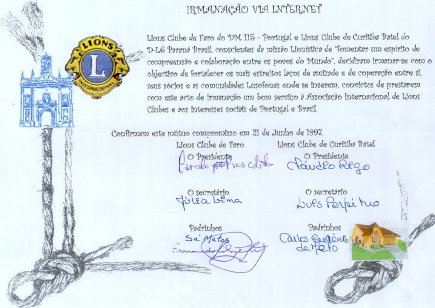 IRMANAÇÃO VIA INTERNET
Lions Clube de Faro do DM 115 - Portugal e Lions Clube de Curitiba Batel do
D-L6 Paraná Brasil, conscientes da missão Lionística de "fomentar um espírito de
compreensão e colaboração entre os povos do Mundo", decidiram irmanar-se com o
objectivo de fortalecer os mais estreitos laços de amizade e de coperação entre si,
seus sócios e as comunidades Lusofonas onde se inserem, convictos de prestarem
com este acto de irmanação um bom serviço à Associação Internacional de Lions
Clubes e aos interesses sociais de Portugal e Brasil.
LIONS
L
INTERNATIONAL
Confirmam este mútuo compromisso em 21 de Junho de 1997
Lions Clube de Faro Lions Clube de Curitiba Batel
O Presidente O Presidente
Cláudio Rego
O secretário O secretário
Lima Luís
Padrinhos Padrinhos
Sá Matos Carlos
de Melo